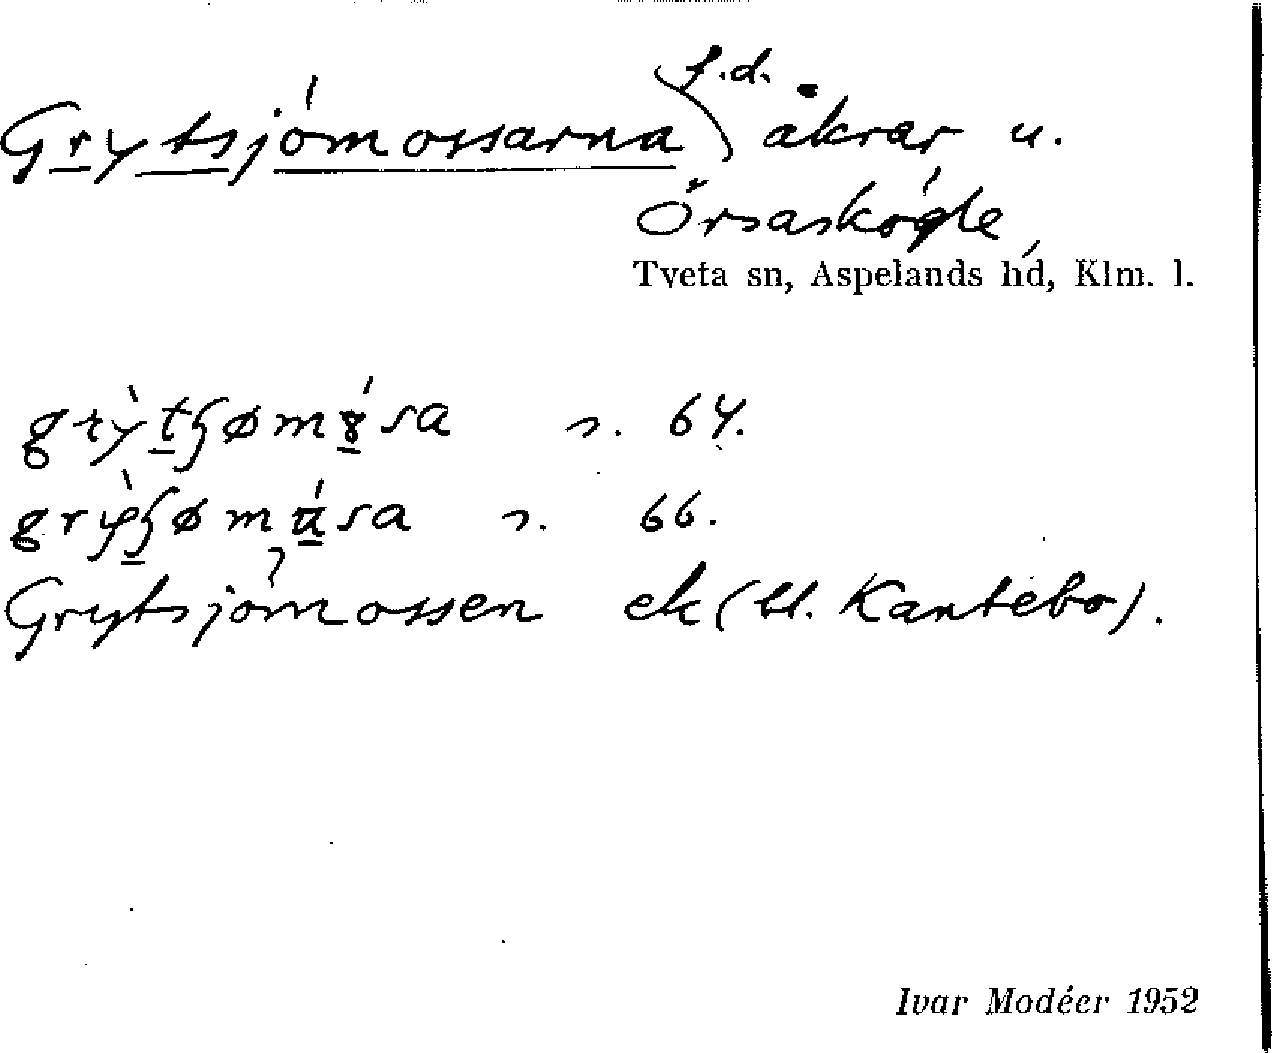 Grytsjömossarna f.d. åkrar u.
Örsaskögle,
Tveta sn, Aspelands hd, Klm. l.
s. 64.
s. 66.
Grytsjömossen ek (bl. Kantebo).
Ivar Modéer 1952